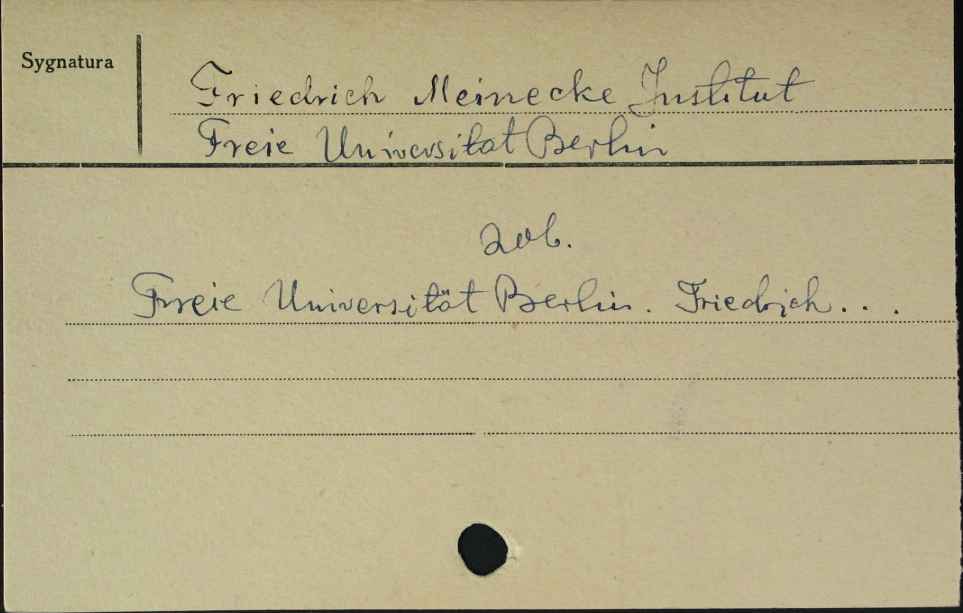 Sygnatura
Friedrich Meinecke Institut
Freie Universitat Berlin
zob.
Freie Universität Berlin. Friedrich...